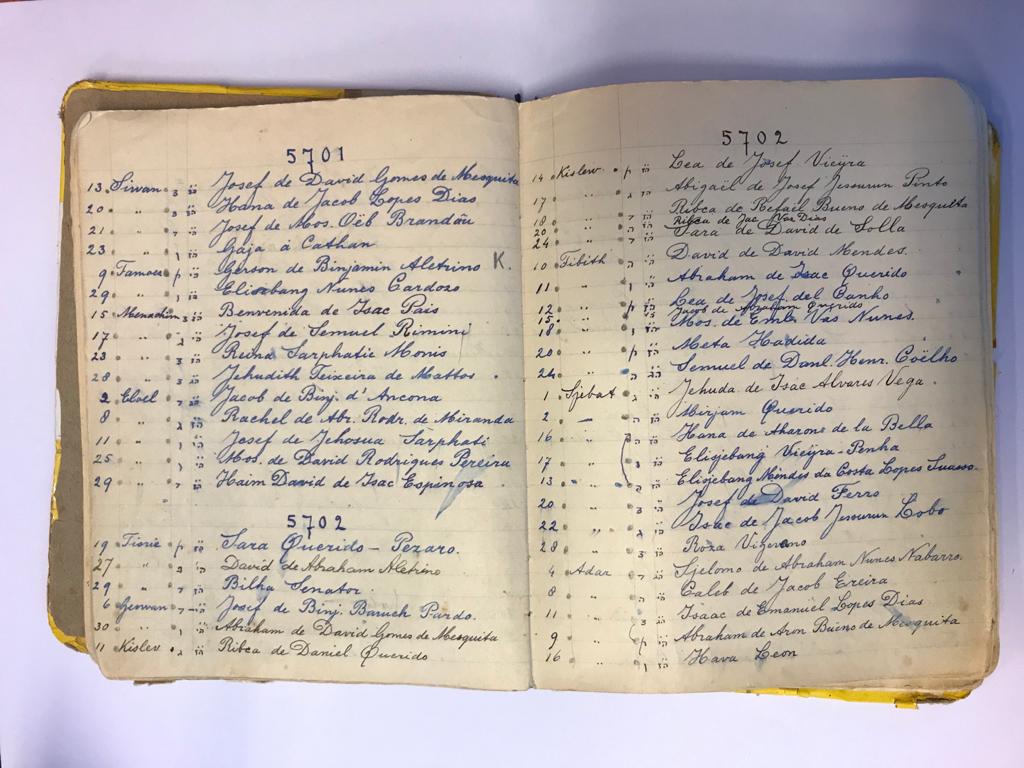 5701
13 Siwan ג הז Josef de David Gomes de Mesquita
20 " ג הז Hana de Jacob Lopes Dias
21 " ד הז Josef de Mos. Oëb Brandão
23 " Gaja a Cathan
9 Tamoes הז Gerson de Binjamin Aletrino K.
29 " ו הז Elisebang Nunes Cardozo
15 Menachem הז Benvenida de Isac Pais
17 " הז Josef de Semuel Rimini
23 " ג הז Reina Sarphatie Monis
28 " ג הז Jehudith Teixeira de Mattos
2 Eloel הז Jacob de Binj. d'Ancona
8 " הז Rachel de Abr. Rodr. de Miranda
11 " Josef de Jehosua Sarphati
25 " ו הז Mos. de David Rodrigues Pereira
29 " הז Haim David de Isac Espinosa
5702
19 Tisrie הז Sara Querido - Pezaro.
27 " הז David de Abraham Aletrino
29 " הז Bilha Senator
6 Geswan הז Josef de Binj. Baruch Pardo.
30 " ו הז Abraham de David Gomes de Mesquita
11 Kislev הז Ribca de Daniel Querido
5702
14 Kislew הז Lea de Josef Vieÿra
17 " הז Abigaël de Josef Jessurun Pinto
18 " הז Ribca de Refaël Bueno de Mesquita
20 " הז Ribca de Jac. Vas Dias
24 " הז Sara de David de Solla
10 Tibith ה הז David de David Mendes.
11 " ו הז Abraham de Isac Querido
12 " הז Lea de Josef del Canho
15 " Jacob de Abraham Querido
18 " ו הז Mos. de Eml. Vas Nunes.
20 " הז Meta Hadida
24 " ה הז Semuel de Danl. Henr. Coëlho
1 Sjebat הז Jehuda de Isac Alvares Vega.
2 — הז Mirjam Querido
16 " הז Hana de Aharon de la Bella
17 " הז Elisjebang Vieÿra - Penha
13 " הז Elisjebang Mendes da Costa Lopes Suasso.
20 " הז Josef de David Ferro
22 " הז Isac de Jacob Jessurun Lobo
28 " ג הז Roza Vigevano
4 Adar ד הז Sjelomo de Abraham Nunes Nabarro.
8 " ה הז Caleb de Jacob Ereira
11 " ג הז Isaac de Emanuel Lopes Dias
9 " הז Abraham de Aron Bueno de Mesquita
16 " ו הז Hava Leon